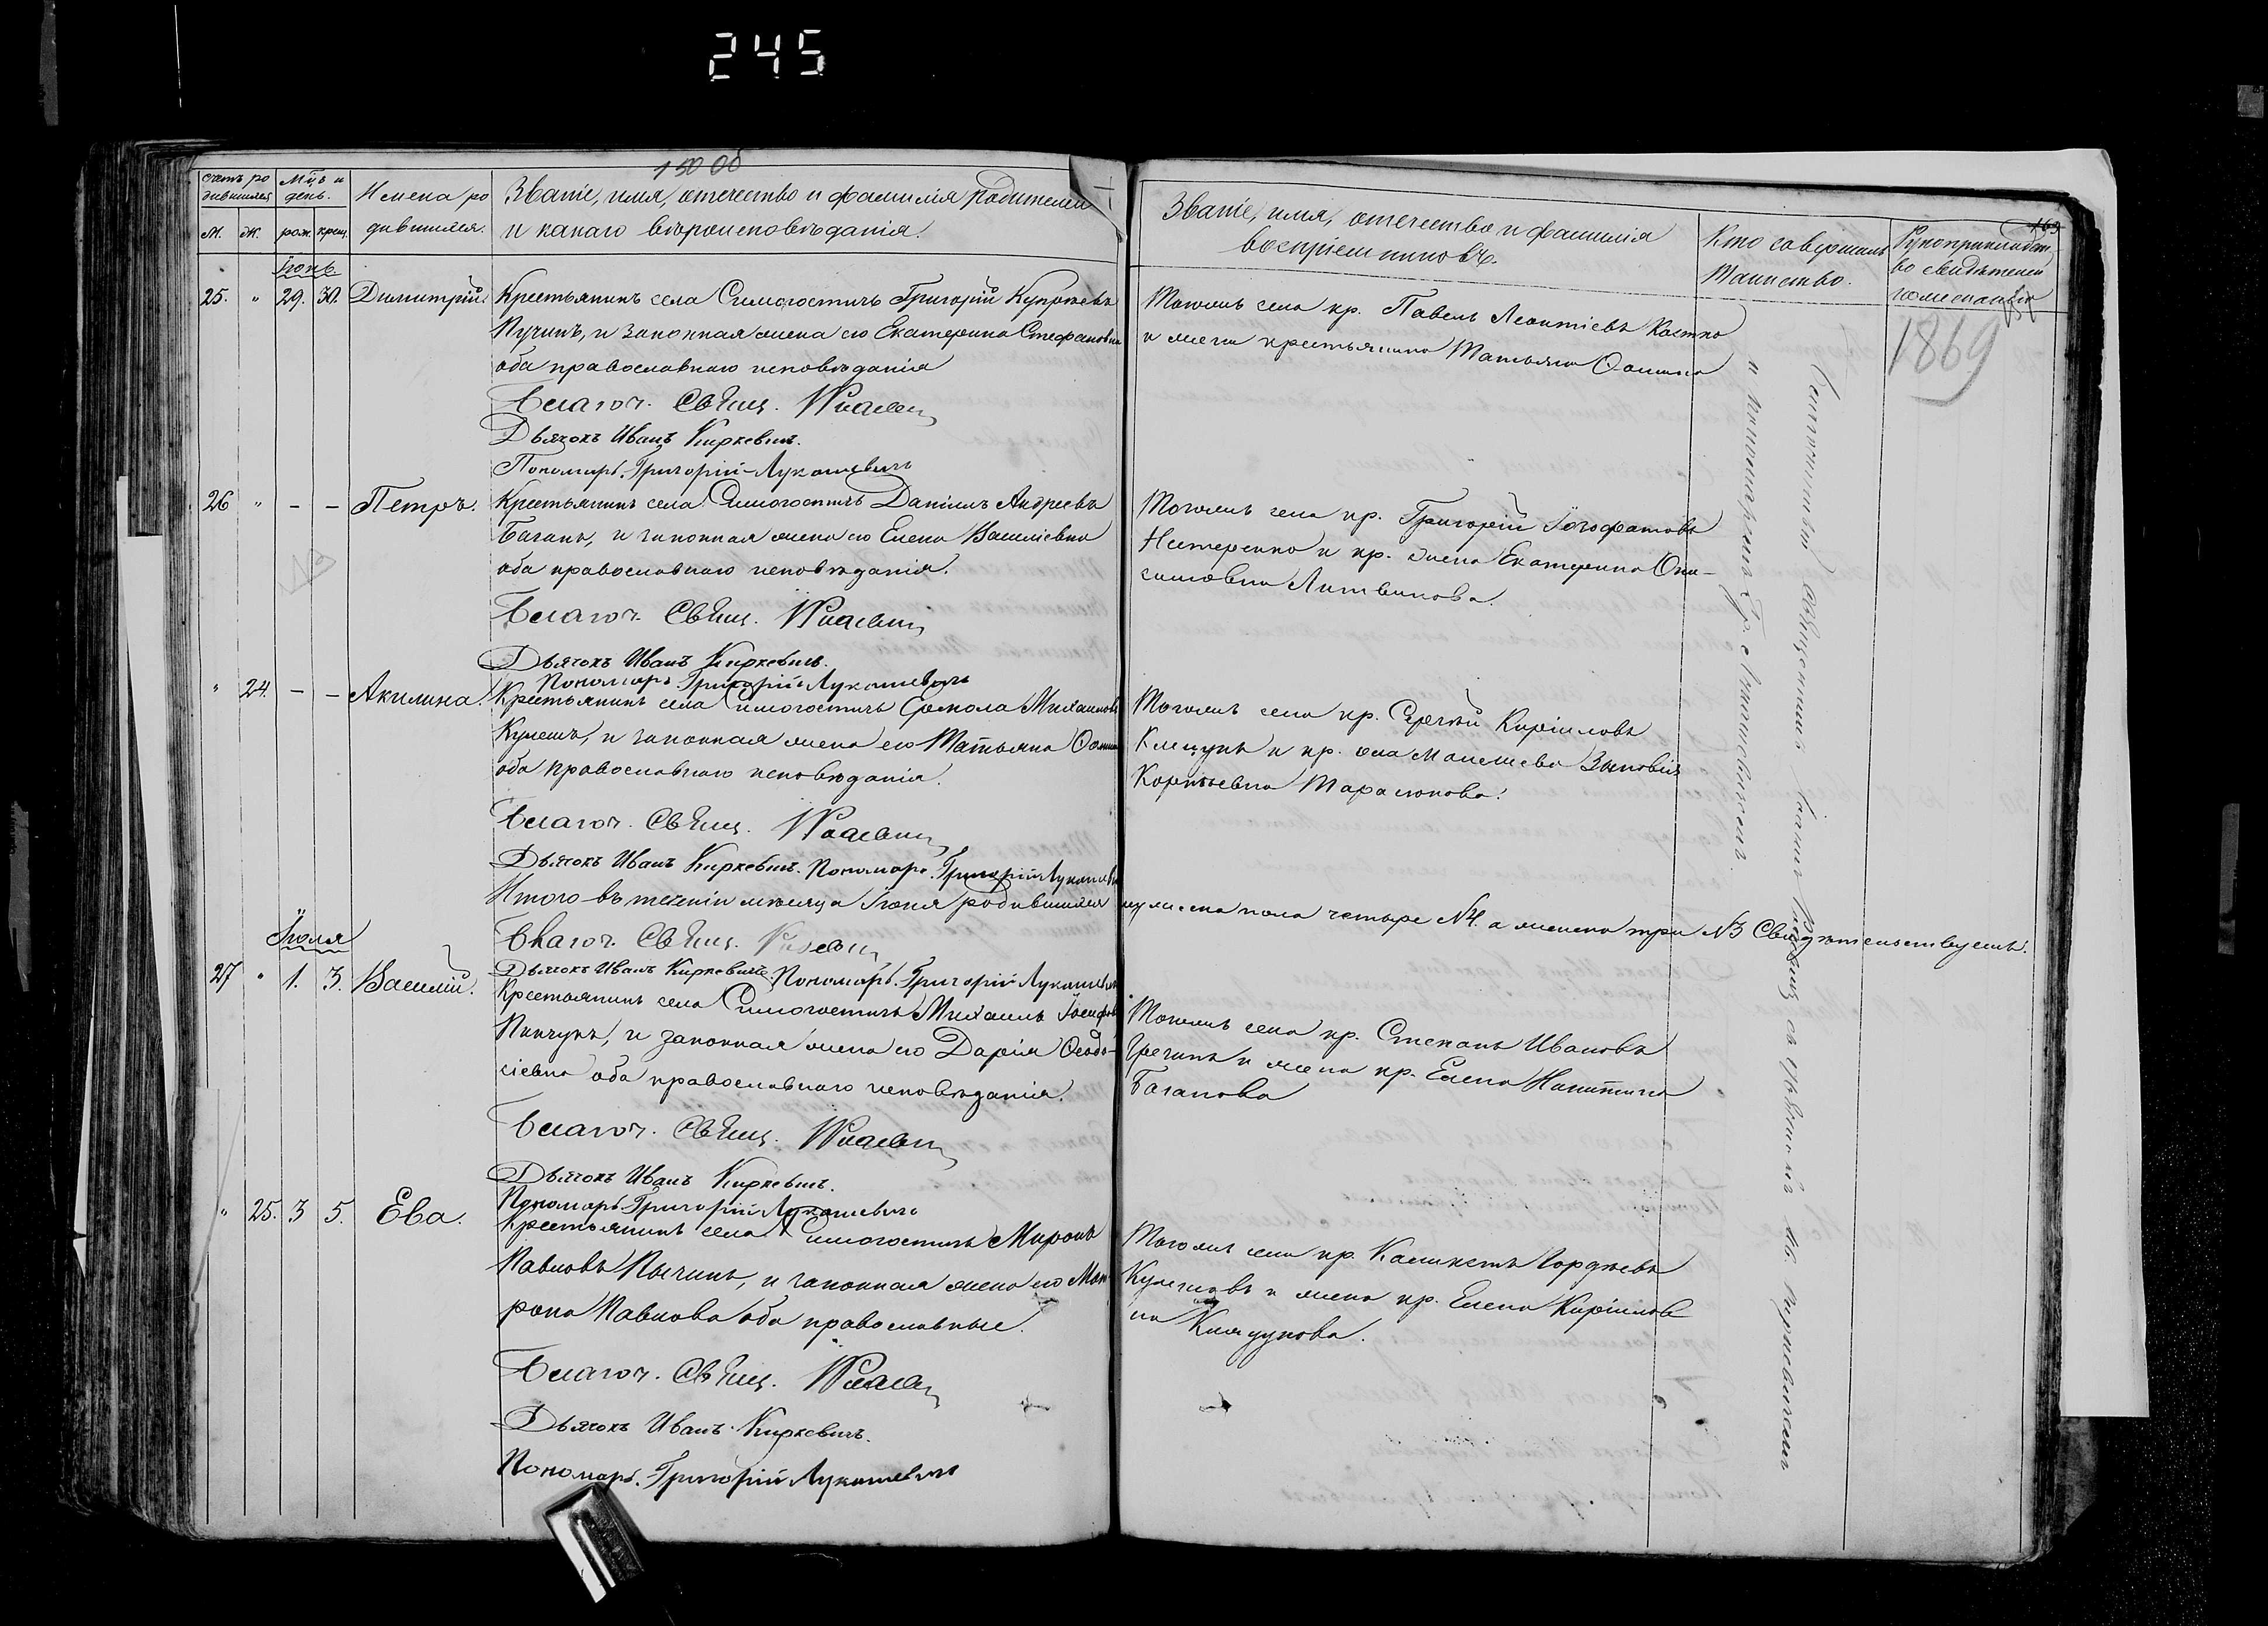 245
150 об
Счетъ ро
дившихся
Мцъ и
день.
Имена ро
дившихся.
Званіе, имя, отечество и фамилія родителей
и какого вѣроисповѣданія.
М. Ж. рож. крещ.
Званіе, имя, отечество и фамилія
воспріемниковъ.
Кто совершалъ
таинство.
Рукоприкладст
во свидѣтелей
1869
Іюнь
25. " 29. 30. Димитрій.
Крестьянинъ села Симогостичъ Григорій
и законная жена его Екатерина Стефановна
оба православнаго исповѣданія
Благоч. Свящ.
Дьячокъ Иванъ Киркевичъ.
Пономарь Григорій Лукашевичъ
Тогожъ села кр. Павелъ Леонтіевъ Костко
и жена крестьянина Татьяна Фомина
26 " - - Петръ.
Крестьянинъ села Симогостичъ Даніилъ Андреевъ
Баганъ, и законная жена его Елена Василіевна
оба православнаго исповѣданія.
Благоч. Свящ.
Дьячокъ Иванъ Киркевичъ.
Пономарь Григорій Лукашевичъ
Тогожъ села кр. Григорій Іосафатовъ
Нестеренко и кр. жена ЕкатеринаОни-
симовна Литвинова.
" 24. - - Акилина.
Крестьянинъ села Симогостичъ Михаиловъ
Кулешъ, и законная жена его Татьяна
оба православнаго исповѣданія.
Благоч. Свящ.
Дьячокъ Иванъ Киркевичъ. Пономарь Григорій Лукашевичъ
Тогожъ села кр. Сергѣй Кириловъ
Клецунъ и кр. села Зиновія
Карпѣевна Тарасюкова.
Итого въ теченіи мѣсяца Іюня родившихся мужеска пола четыре №4. а женска три №3 Свидѣтельствуемъ.
Благоч. Свящ.
Дьячокъ Иванъ Киркевичъ. Пономарь Григорій Лукашевичъ
Іюля
27 " 1. 3. Василій.
Крестьянинъ села Симогостичъ Михаилъ Іосифовъ
Пинчукъ, и законная жена его Дарія Ѳеодо-
сіевна оба православнаго исповѣданія.
Благоч. Свящ.
Дьячокъ Иванъ Киркевичъ.
Пономарь Григорій Лукашевичъ
Тогожъ села кр. Степанъ Ивановъ
и жена кр. Елена Никитина
Баганова
" 25. 3 5. Ева.
Крестьянинъ села Симогостичъ Миронъ
Павловъ и законная жена его Мат-
рона Павлова оба православные.
Благоч. Свящ.
Дьячокъ Иванъ Киркевичъ.
Пономарь Григорій Лукашевичъ
Тогожъ села кр. Каликстъ Гордѣевъ
Кулешовъ и жена кр. Елена Кирилов
на Клецунова.
и пономаремъ Гр. Лукашевичемъ